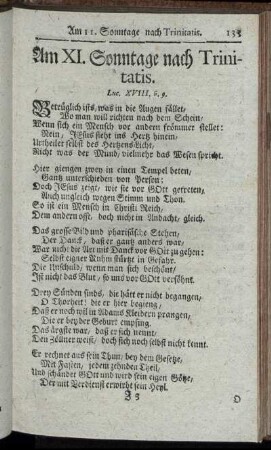 Am 11. Sonntage nach Trinitatis. 135
Am XI. Sonntage nach Trini-
tatis.
Luc. XVIII, v. 9.
Betrüglich ists, was in die Augen fället,
Wo man will richten nach dem Schein,
Wenn sich ein Mensch vor andern frömmer stellet:
Nein, JEsus sieht ins Hertz hinein,
Urtheilet selbst des Hertzens Licht,
Nicht was der Mund, vielmehr das Wesen spricht.
Hier giengen zwey in einen Tempel beten,
Gantz unterschieden von Person:
Doch JEsus zeigt, wie sie vor GOtt getreten,
Auch ungleich wegen Stimm und Thon.
So ist ein Mensch in Christi Reich,
Dem andern offt, doch nicht in Andacht, gleich.
Das grosse Bild und pharisäsche Stehen,
Der Danck, daß er gantz anders war,
War nicht die Art mit Danck vor GOtt zu gehen:
Selbst eigner Ruhm stürtzt in Gefahr.
Die Unschuld, wenn man sich beschönt,
Ist nicht das Blut, so uns vor GOtt versöhnt.
Drey Sünden sinds, die hätt er nicht begangen,
O Thorheit: die er hier begieng,
Daß er noch will in Adams Kleidern prangen,
Die er bey der Geburt empfing.
Das ärgste war, daß er sich nennt,
Den Zöllner weist, doch sich noch selbst nicht kennt.
Er rechnet aus sein Thun, bey dem Gesetze,
Mit Fasten, jedem zehnden Theil,
Und schändet GOtt und wird sein eigen Götze,
Der mit Verdienst erwirbt sein Heyl.
J 3 O